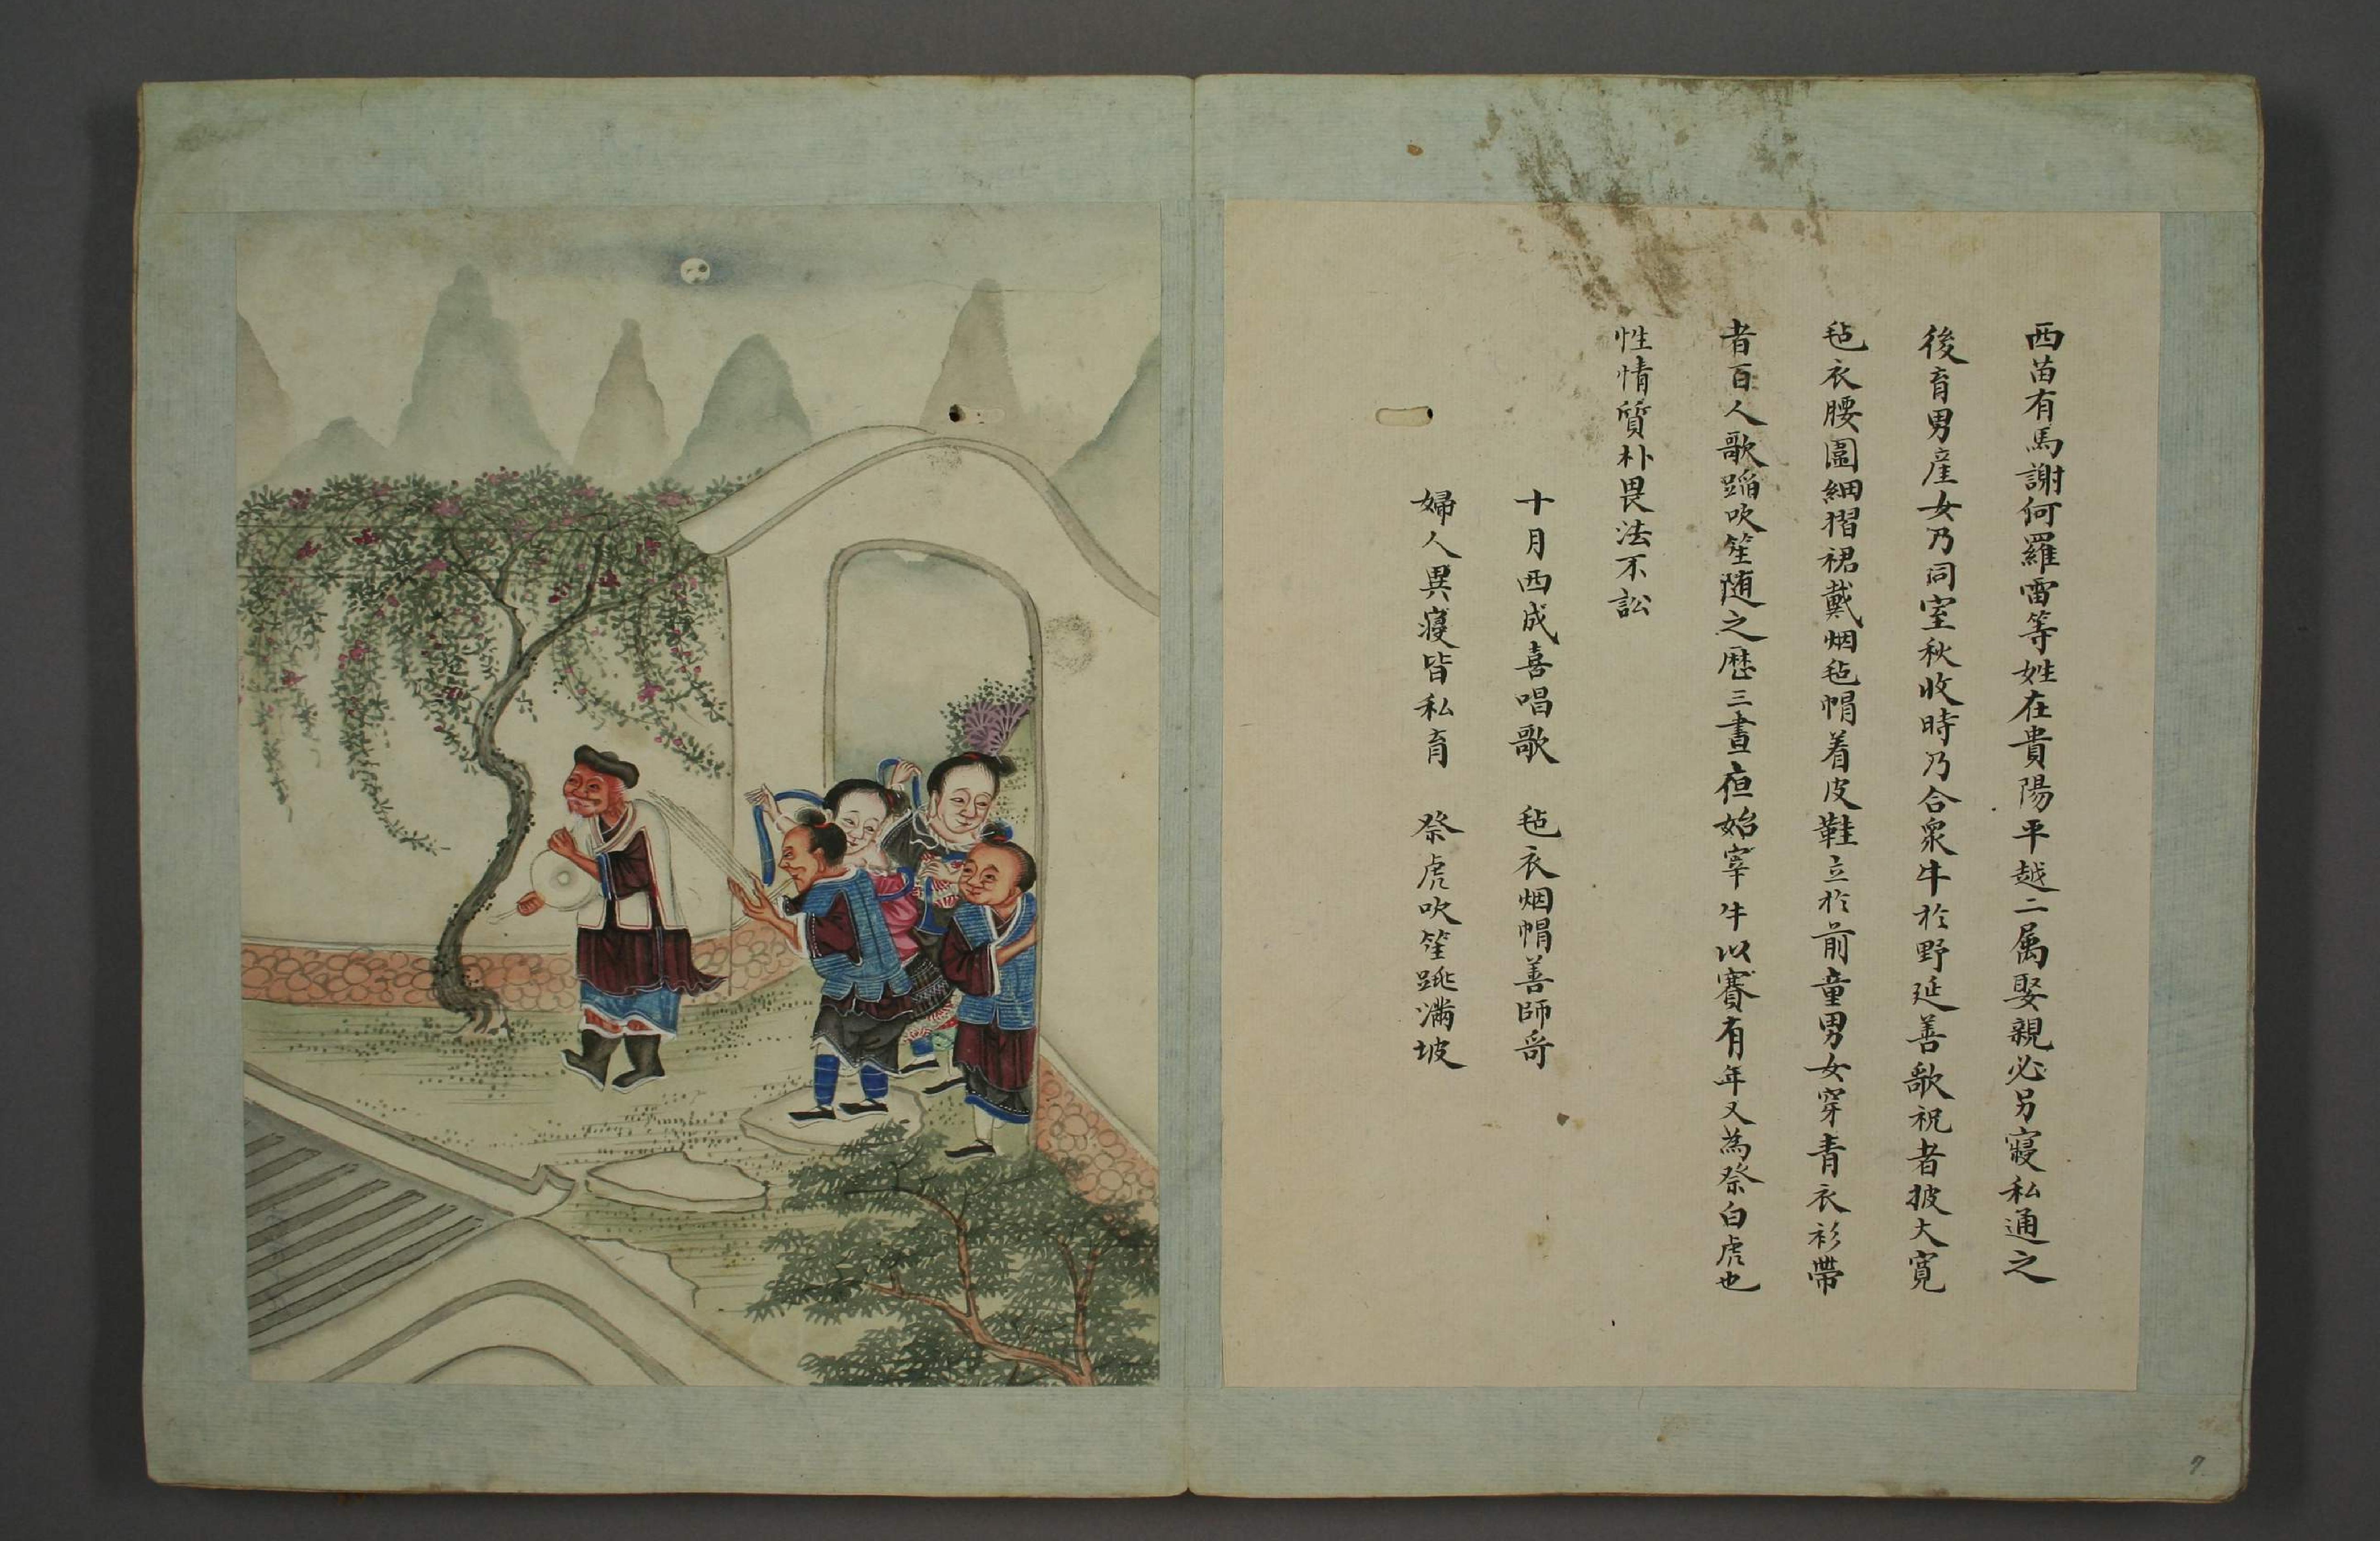 西苗有馬謝何羅雷等姓在貴陽平越二属娶親必另寢私通之
後育男産女乃同室秋收時乃合衆牛於野延善歌祝者披大寬
毡衣腰圍細褶裙戴烟毡帽着皮鞋立於前童男女穿青衣衫帶
者百人歌蹈吹笙随之歷三晝夜始宰牛以賽有年又為祭白虎也
性情質朴畏法不訟
十月西成喜唱歌 毡衣烟帽善師哥
婦人異寢皆私育 祭虎吹笙跳滿坡
7